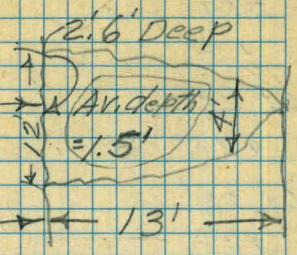 2'.6' Deep
Av. depth
=1.5'
12'
4'
13'